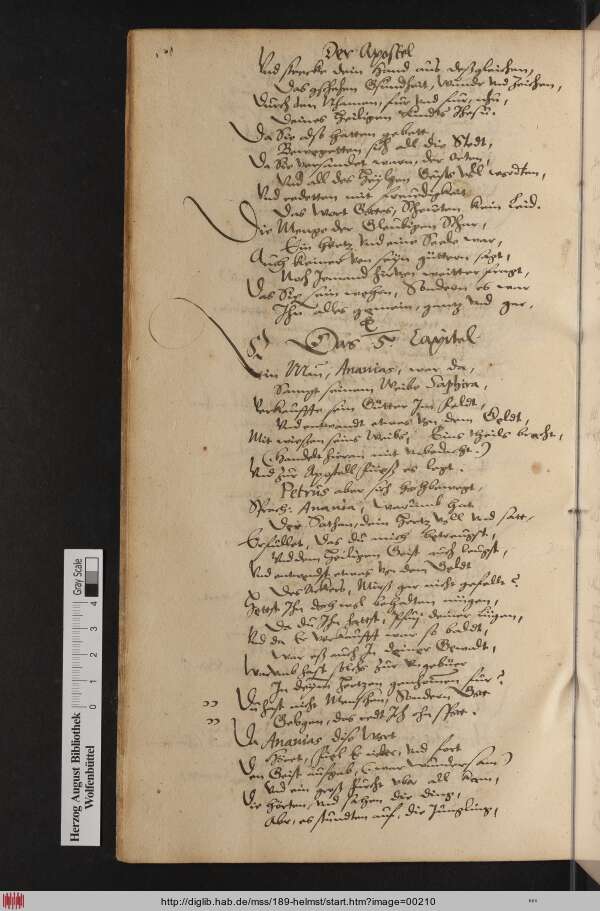 Der Apostel
Vnd strecke dein Hand aus, desgleichen,
Das gschehen Gsundheit, wunder vnd Zeichen,
Durch den Nhamen, für vnd für,
Deines Heiligen Kindts Jhesu.
Da Sie also hatten gebett,
Bewegetten sich all die Stedt,
Da Sie versamlet warn, der orten,
Vnd all des Heylgen Geists vol wordten,
Vnd redetten mit freudigkeit
Das wort Gottes, Scheuten kein Leid.
Die Menge der Gleubigen Schar,
Ein Hertz vnd eine Seele war,
Auch keiner von seyn güttern sagt,
Noch Jemand weitter fragt,
Das Sie sein wehren, Sondern es war
Jhn alles gemein, gantz vnd gar.
Das 5 Capitel
Ein Man, Ananias, war da,
Sampt seinem Weibe Saphira,
Verkauffte sein Gütter Jm feldt,
Vnd entwandt etwas von dem Geldt,
Mit wissen seins Weibs, Eins theils bracht,
(Handelt hieran mit vnbedacht.)
Vnd zur Apostell füess es legt.
Petrus aber sich hoch bewegt,
Sprach: Anania, warumb hat
Der Sathan, dein Hertz voll vnd satt
Erfüllet, das du mich betreugst,
Vnd dem Heiligen Geist auch leugst,
Vnd entwendst etwas von dem Geldt
Des Ackers, Mirs gar nicht gefellt?
Hettst Jhn doch wol behalten mügen,
Da du Jhn hattst, pfuy deiner lügen,
Vnd da Er verkaufft war so baldt,
War es auch Jn deiner Gewalt,
Warumb hast solchs zur vngebüer
Jn deym Hertzen genhomen für?
Du hast nicht Menschen, Sondern Gott
Gelogen, das redt Jch ohn spott.
Da Ananias diss Wort
Hört, fiel Er nider, vnd fort
Den Geist aufgab, (war wundersam)
Vnd ein gross furcht vber all kam,
Die hörten, vnd sahen die ding,
Aber, es stundten auf, die Jüngling,
Herzog August Bibliothek
Wolfenbüttel
0 1 2 3 4
Gray Scale
http://diglib.hab.de/mss/189-helmst/start.htm?image=00210